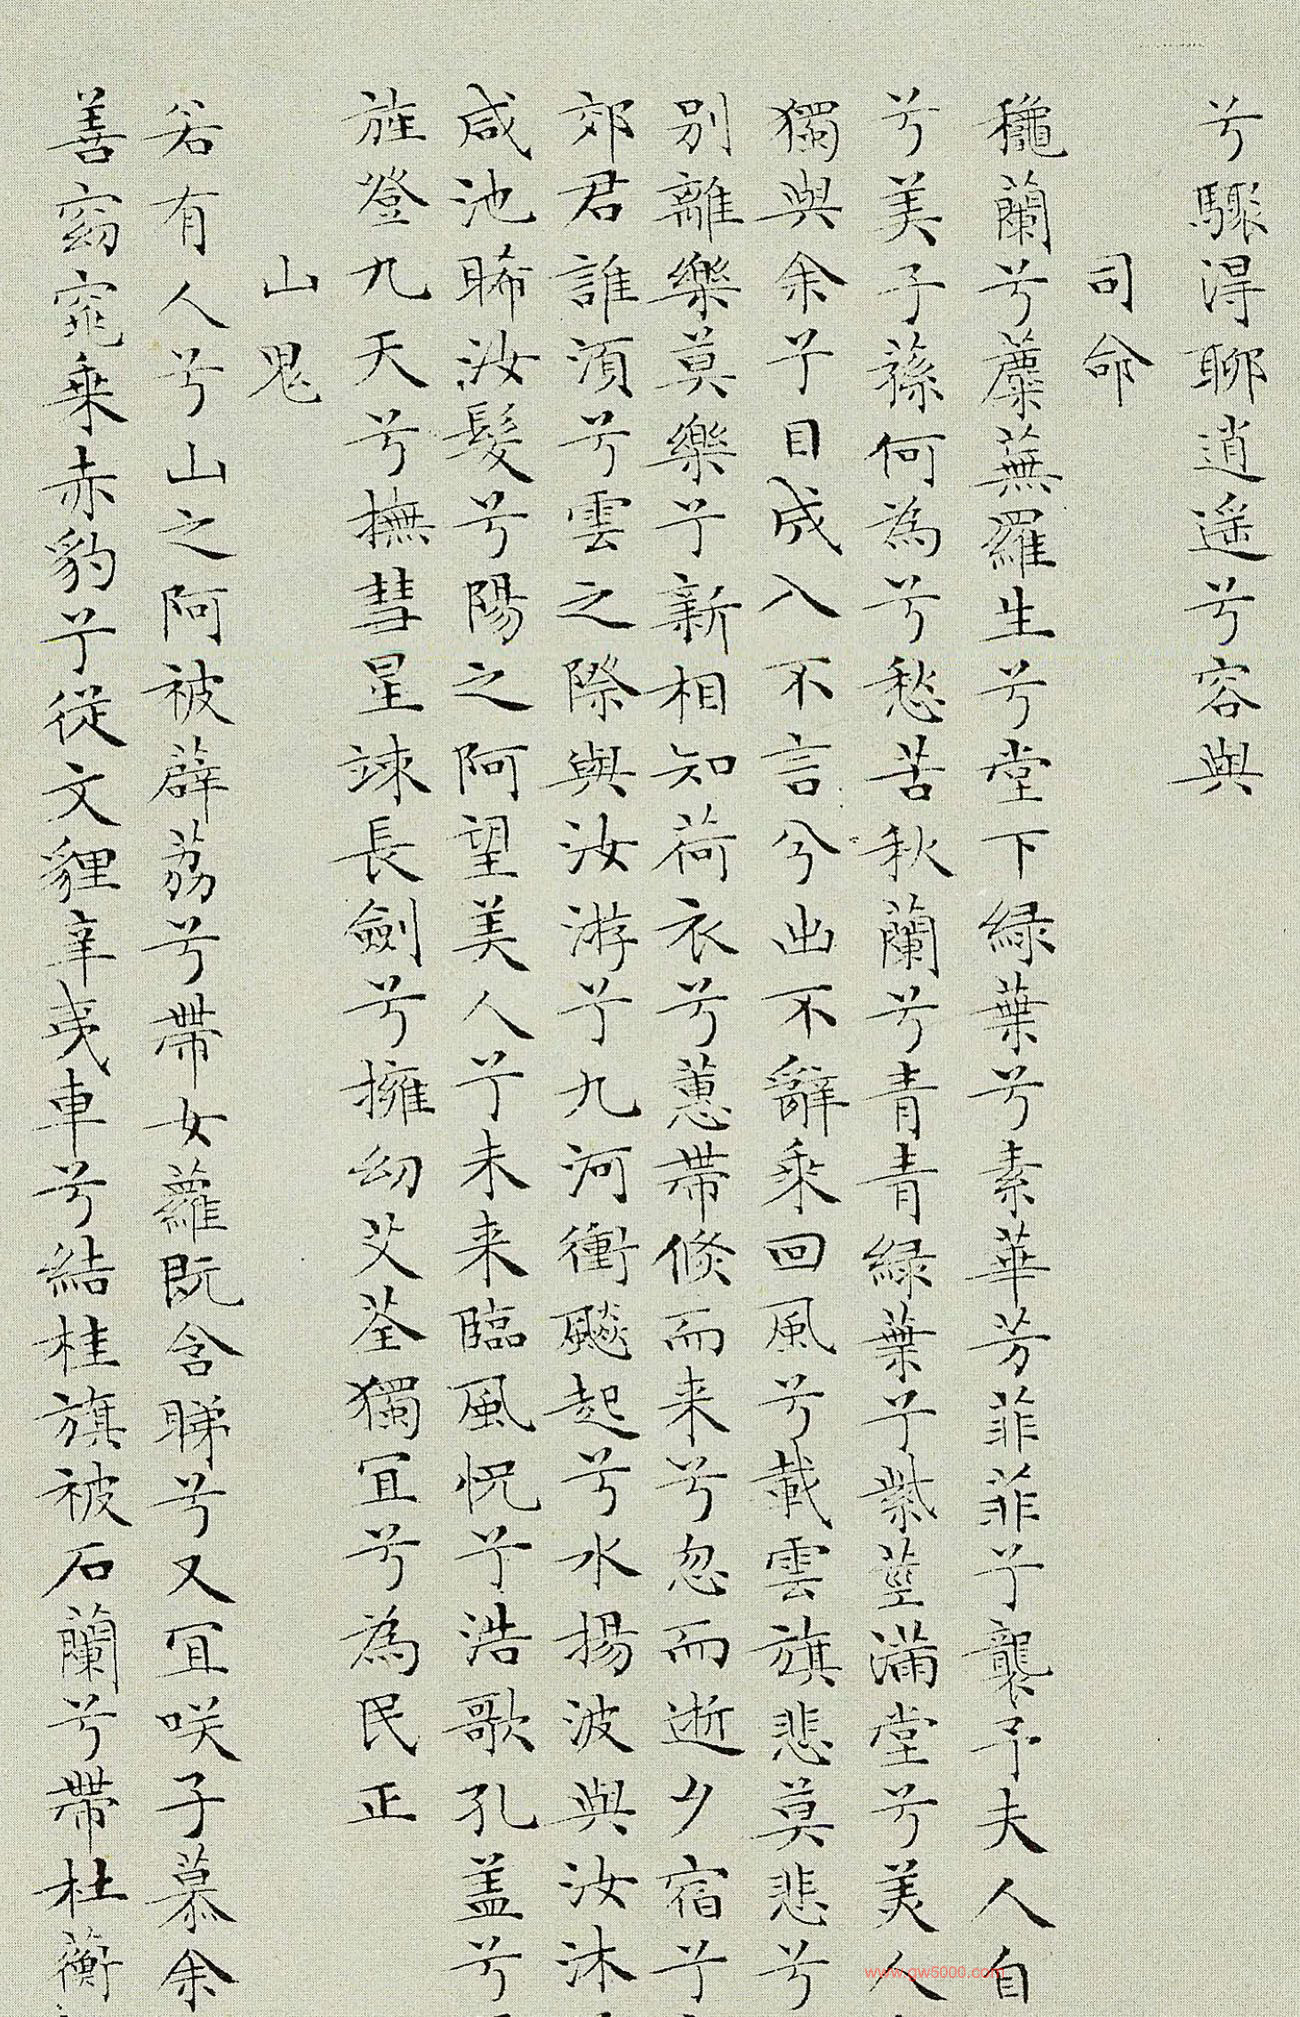 兮驟得聊逍遥兮容與
司命
龝蘭兮蘪蕪羅生兮堂下緑葉兮素華芳菲菲兮襲予夫人自
兮美子蓀何為兮愁苦秋蘭兮青青緑葉兮紫莖滿堂兮美人
獨與余兮目成入不言兮出不辭乘回風兮載雲旗悲莫悲兮
別離樂莫樂兮新相知荷衣兮蕙帶倏而来兮忽而逝夕宿兮
郊君誰須兮雲之際與汝游兮九河衝飈起兮水揚波與汝沐
咸池晞汝髮兮陽之阿望美人兮未来臨風怳兮浩歌孔盖兮
旌登九天兮撫彗星竦長劍兮擁幼艾荃獨冝兮為民正
山鬼
若有人兮山之阿被薜荔兮帶女蘿既含睇兮又冝咲子慕余
善窈窕乘赤豹兮從文貍辛夷車兮結桂旗被石蘭兮帶杜蘅
www.gw5000.com